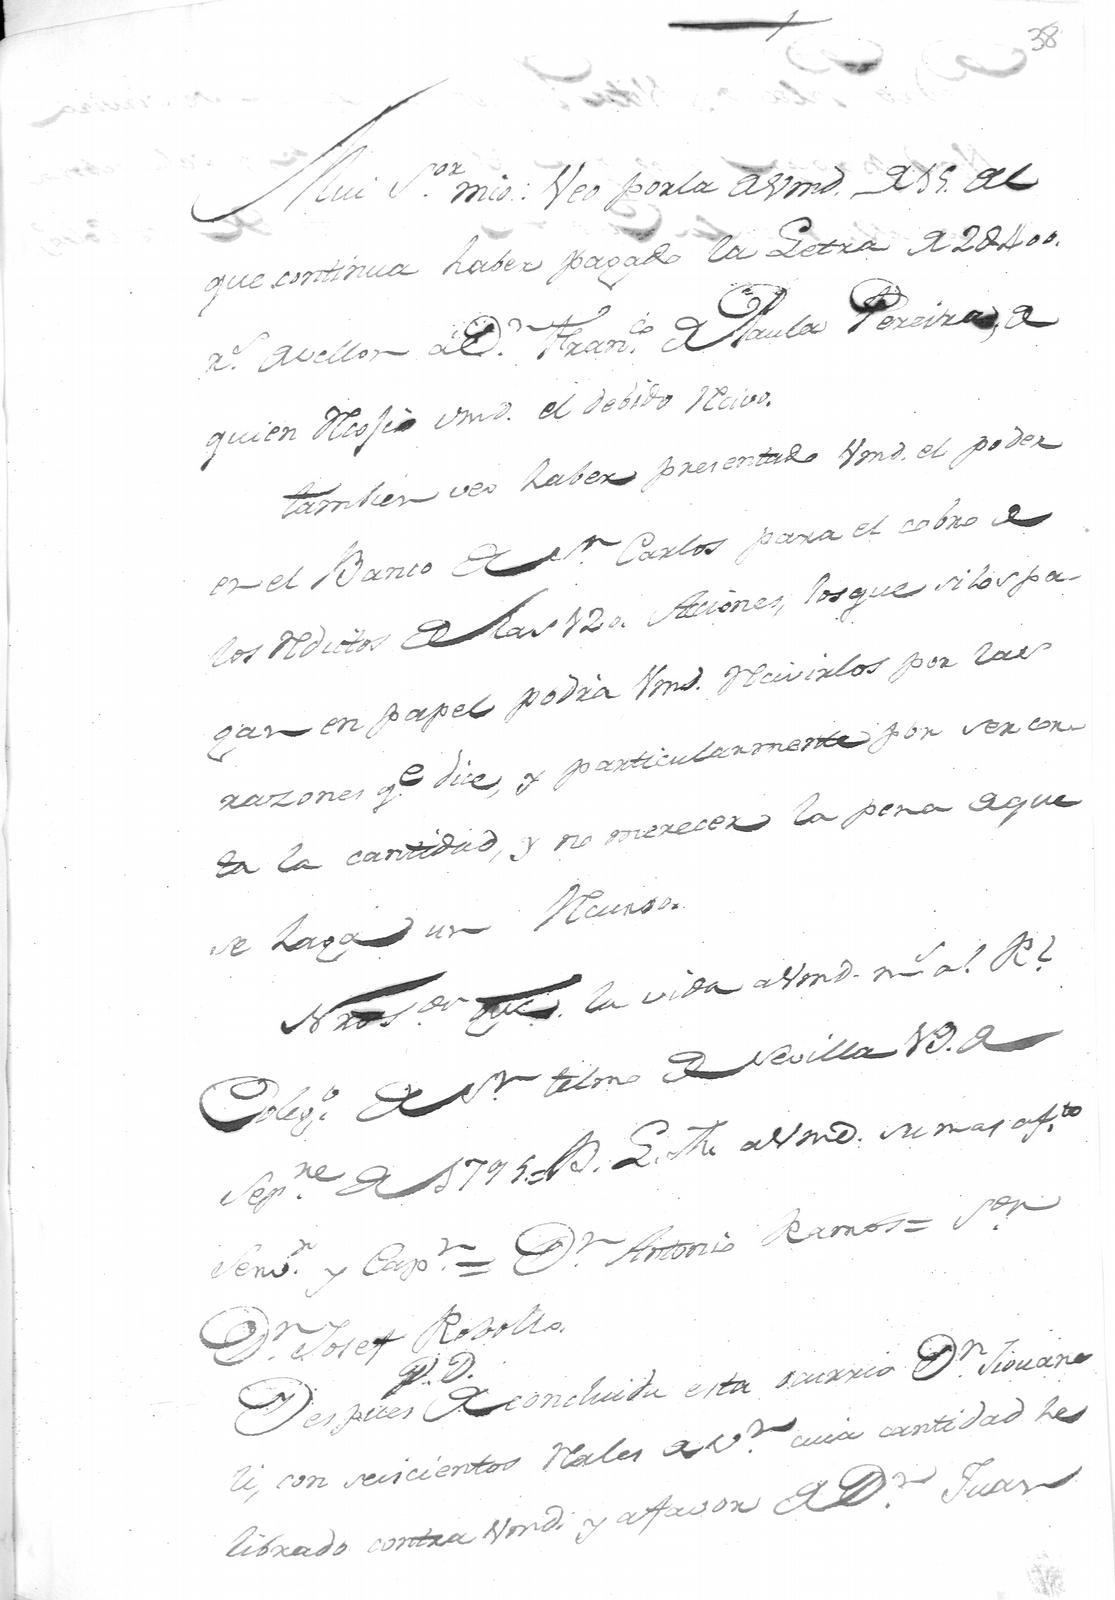 38
Mui S.or mio: Veo por la de Vmd. de 15. del
que continua haber pagado la Letra de 2@400.
r.s de vellon a D.n Fran.co de Paula Pereira, de
quien recojio vmd. el debido recivo.
tambien veo haber presentado Vmd. el poder
en el Banco de S.n Carlos para el cobro de
los reditos de las 120. Acciones, los que si los pa-
gan en papel podrá Vmd. recivirlos por las
razones q.e dice, y particularmente por ser cor-
ta la cantidad, y no merecer la pena de que
se haga un recurso.
Nro S.or gue. la vida de Vmd. m.s a.s R.l
Coleg.o de S.n telmo de Sevilla 19. de
Sep.re de 1795. = B. L. M. de Vmd. su mas af.to
Serv.r y Cap.n = D.n Antonio Ramos = S.or
D.n Josef Rebollo.
P. D.
Despues de concluida esta ocurrio D.n Jiovane
li, con seiscientos reales de v.n cuia cantidad he
librado contra Vmd. y a favor de D.n Juan